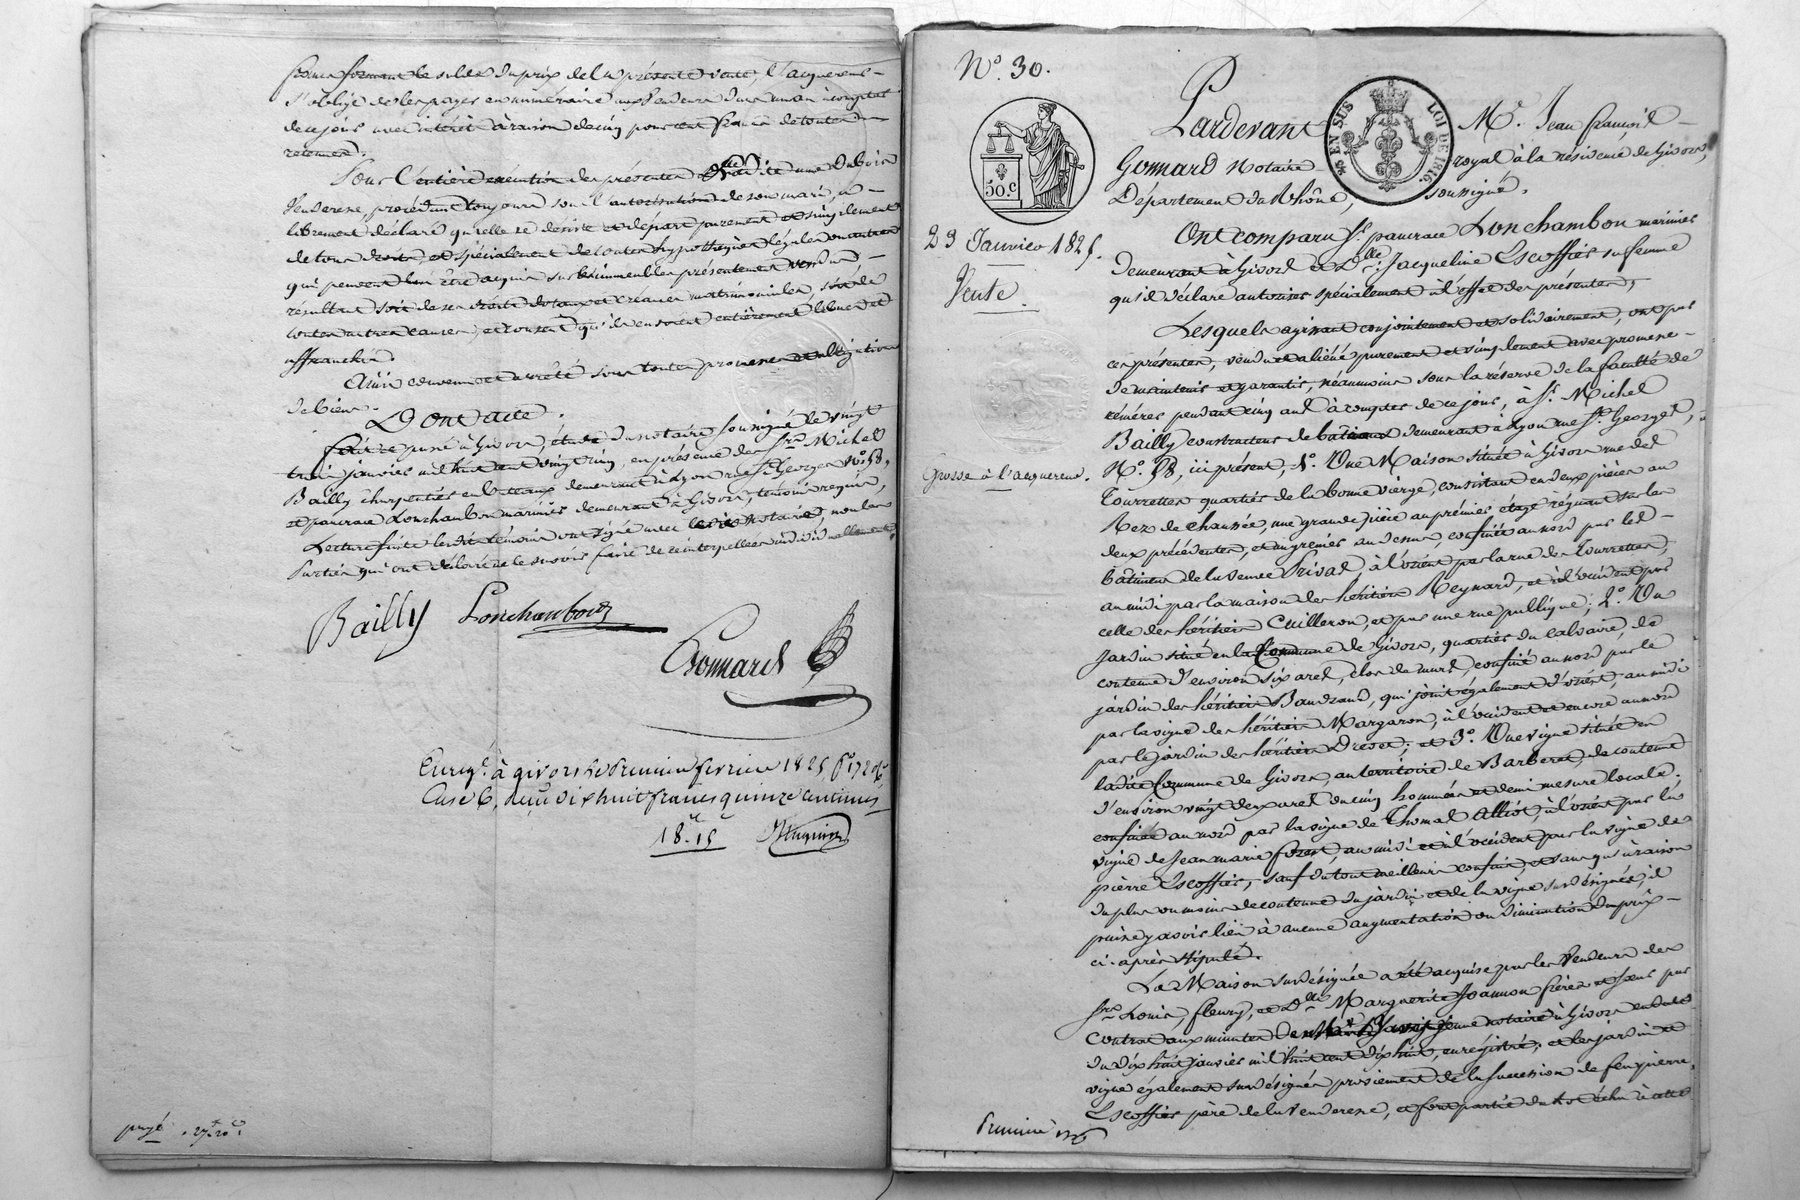 francs formant le solde du prix de la présente vente, l'acquereur
s'oblige de les payer en numéraire aux vendeurs dans un an à compter
de ce jour avec intérêt à raison de cinq pour cent francs de toutes
retenues.
Sous l'entière exécution des présentes
venderesse, procédant toujours sous l'autorisation de son mari, a
librement déclaré qu'elle se désiste et départ purement et simplement
de tous droits et spécialement de toutes hypothèques légales ou autres
qui peuvent lui être acquis sur les immeubles présentement vendus
résultant soit de ses droits dotaux et créances matrimoniales, soit de
toutes autres causes, et consent qu'ils en soient entièrement libérés et
affranchis.
Ainsi convenu et arrêté sous toutes promesses et obligations
de biens.
Dont acte.
fait et passé à Givors, étude du notaire soussigné le vingt
trois janvier mil huit cent vingt cinq, en présence des Srs Michel
Bailly charpentier en bateaux demeurant à Lyon rue St Georges No 58,
et pancrace Lonchambon marinier demeurant à Givors, témoins requis,
Lecture faite lesdits témoins ont signé avec le notaire non les
Parties qui ont déclaré ne le savoir faire de ce interpellées individuellement.
Bailly Lonchambon
Gonnard
Enregé à givors le Premier fevrier 1825 fo 172
Case 6, reçu dix huit francs quinze centimes
18.15
payé 27.20
No. 30.
50.c
45 EN SUS LOI DE 1816.
Pardevant Me. Jean françois
Gonnard Notaire royal à la résidence de Givors,
Département du Rhône, soussigné.
23 Janvier 1825.
Vente.
Grosse à l'acquereur.
Ont comparu Sr. pancrace Lonchambon marinier
demeurant à Givors et Dlle. Jacqueline Escoffier sa femme
qu'il déclare autoriser spécialement à l'effet des présentes,
Lesquels agissant conjointement et solidairement, ont par
ces présentes, vendu et aliéné purement et simplement avec promesse
de maintenir et garantir, néanmoins sous la réserve de la faculté de
réméré pendant cinq ans à compter de ce jour, à Sr. Michel
Bailly constructeur de bateaux demeurant à Lyon rue St. Georges,
No. 58, ici présent, 1o. Une Maison située à Givors rue des
Tourrettes quartier de la bonne vierge, consistant en deux pièces au
Rez de chaussée, une grande pièce au premier étage régnant sur les
deux précédentes, et un grenier au dessus, confinée au nord par les
bâtimens de la veuve Privas, à l'orient par la rue des Tourrettes,
au midi par la maison des héritiers Reynard, et à l'occident par
celle des héritiers Cuilleron, et par une rue publique; 2o. Un
Jardin situé en la Commune de Givors, quartier du calvaire, de
contenue d'environ six ares, clos de murs, confiné au nord par le
jardin des héritiers Baudrand, qui joint également d'orient, au midi
par la vigne des héritiers Margaron, à l'occident et encore au nord
par le jardin des héritiers Drevet; et 3o. Une vigne située en
ladite Commune de Givors, au territoire de Barberat, de contenue
d'environ vingt deux ares ou cinq hommées et demi mesure locale;
confinée au nord par la vigne de Thomas Alliot, à l'orient par la
vigne de Jean marie forest, au midi et à l'occident par la vigne de
pierre Escoffier, sauf du tout meilleurs confins, et sans qu'à raison
du plus ou moins de contenue du jardin et de la vigne sus désignés, il
puisse y avoir lieu à aucune augmentation ou diminution du prix
ci-après stipulé.
La Maison sus désignée a été acquise par les Vendeurs des
Srs Louis, fleury, et Dlle Marguerite Joannon frères et sœur par
Contrat aux minutes de Me jeune notaire à Givors en date
du dix huit janvier mil huit cent dix huit, enregistré; et les jardin et
vigne également sus désignés proviennent de la succession de feu pierre
Escoffier père de la venderesse, et font partie du lot échu à cette
Premiere